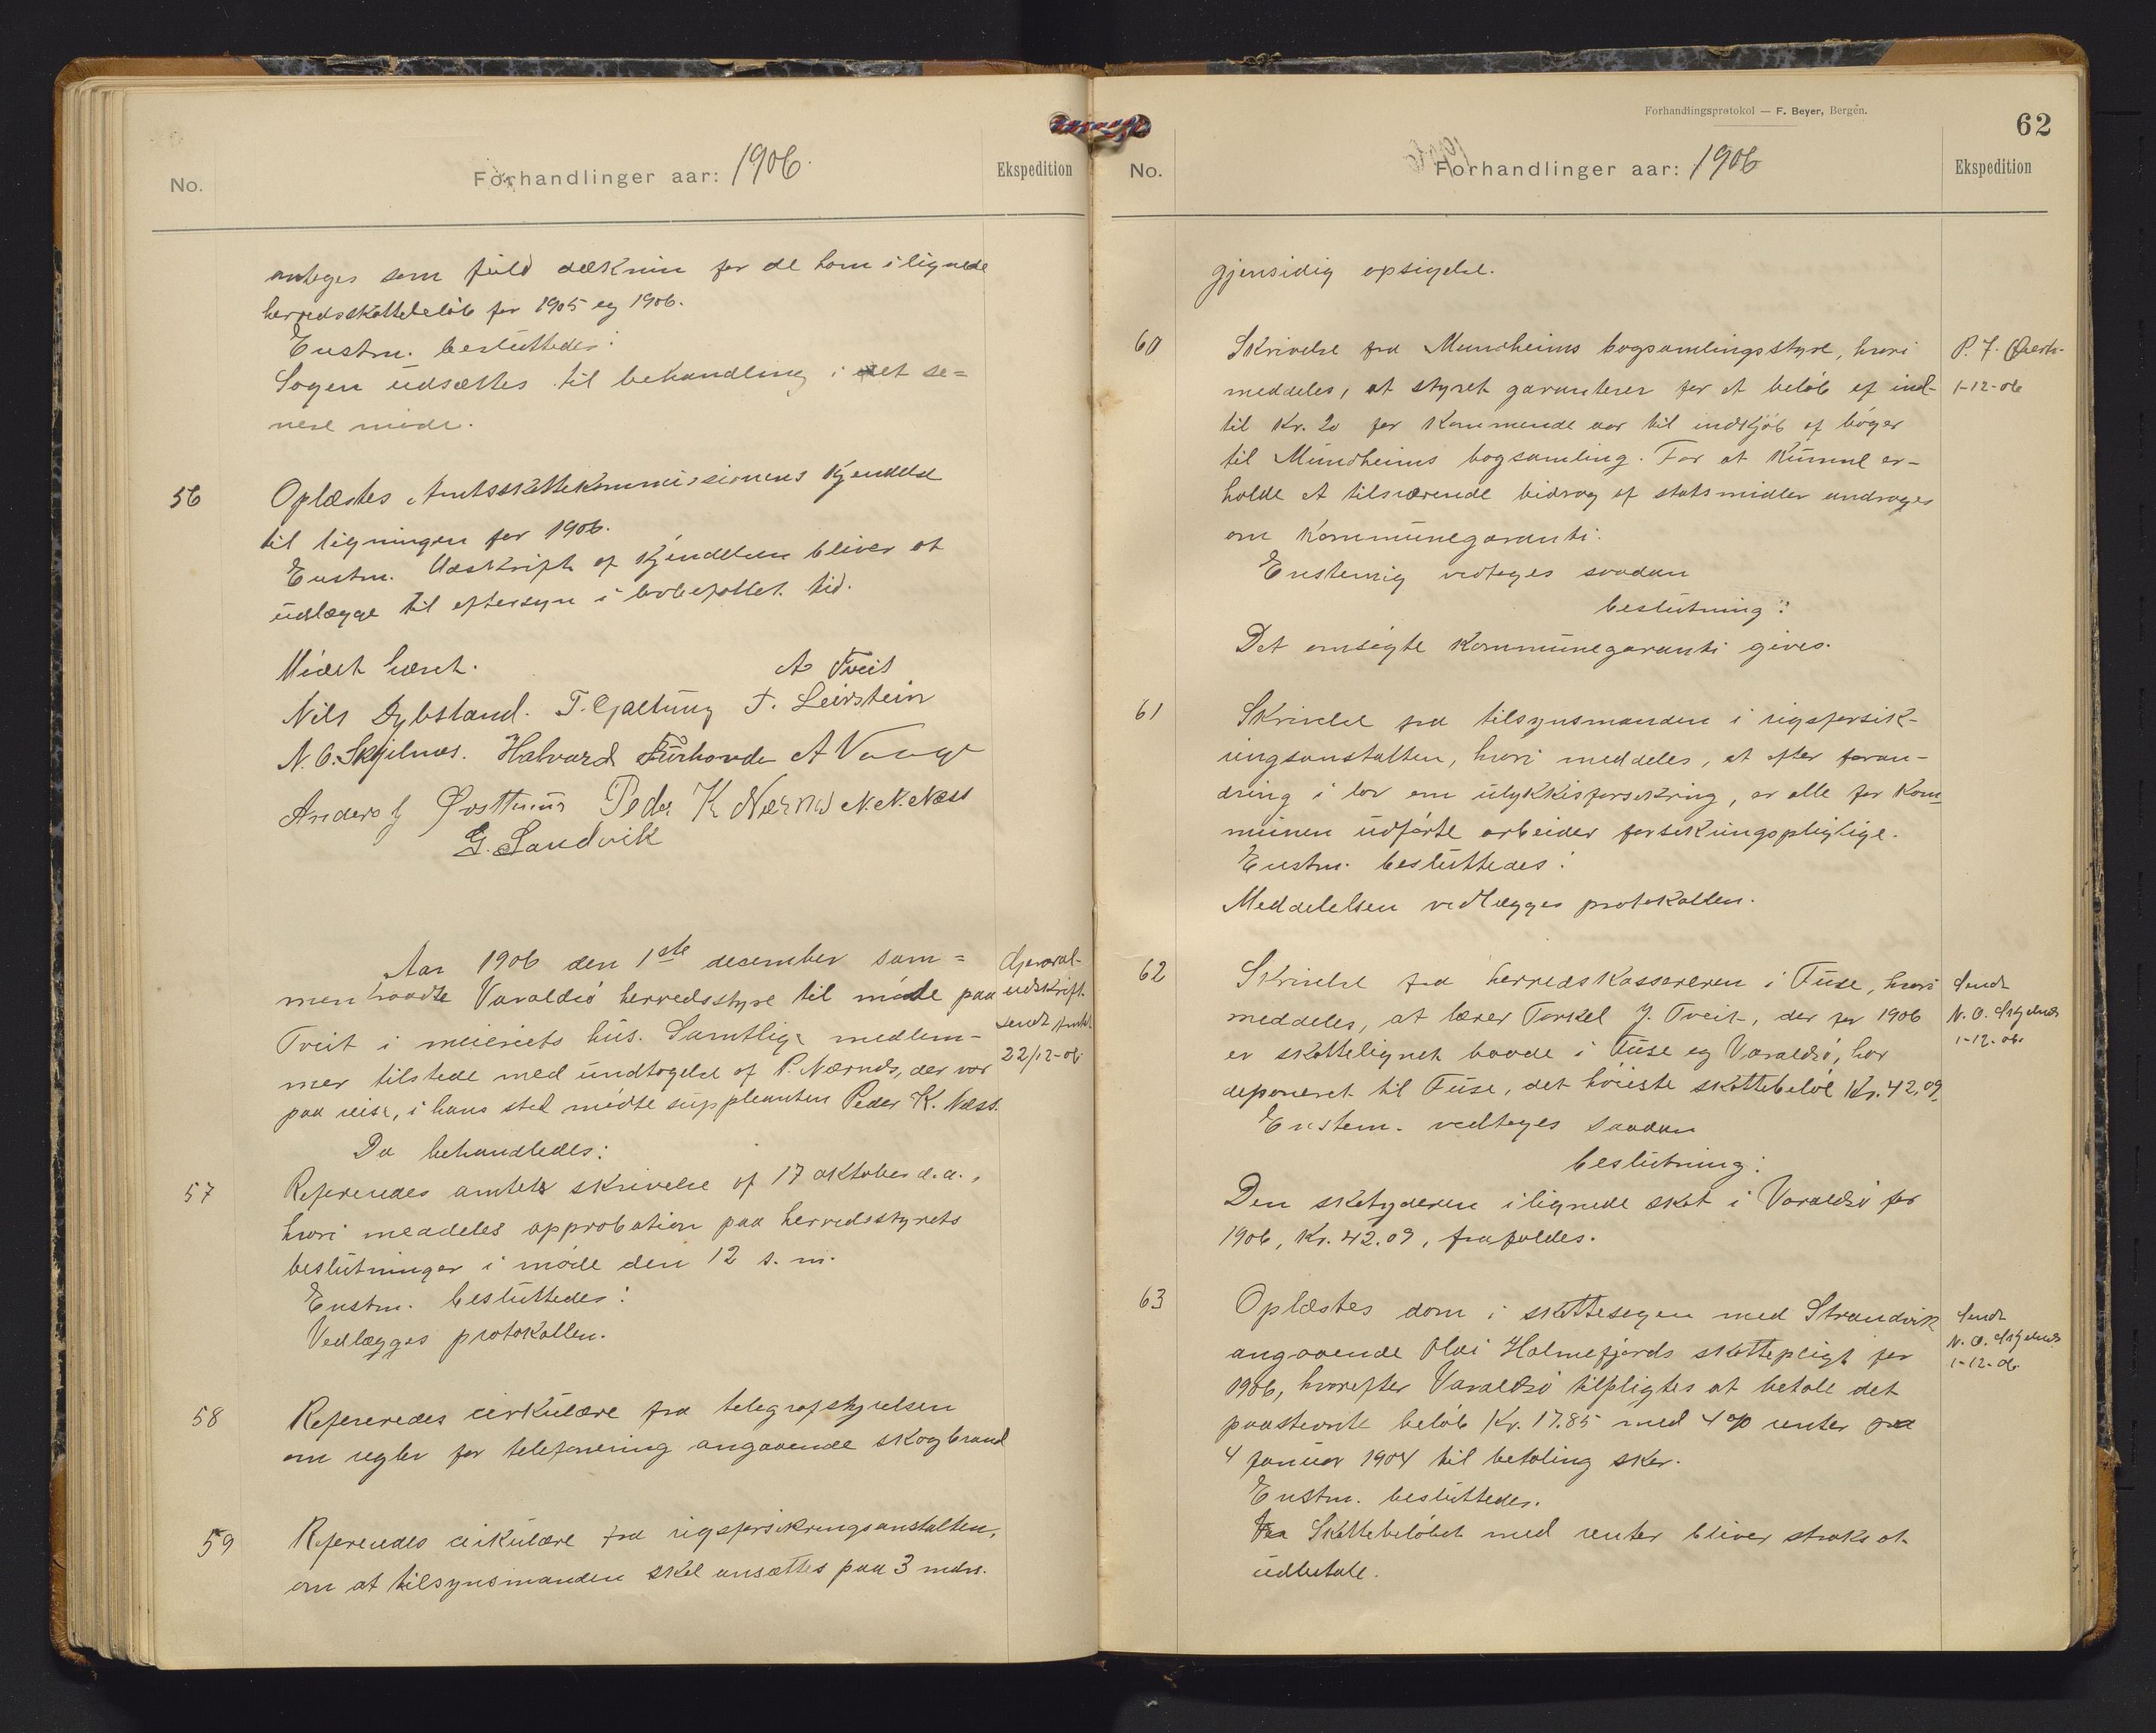 No.
Forhandlinger aar: 1906.
Ekspedition
antages som fuld dækning for de ham ilignede
herredsskattebeløb for 1905 og 1906.
Enstm. besluttedes:
Sagen udsættes til behandling i et se=
nere møde.
56
Oplæstes Amtsskattekommissionens kjendelse
til ligningen for 1906.
Enstm. Udskrift af kjendelsen bliver at
udlægge til eftersyn i lovbefallet tid.
Mødet hævet.
A Tveit
Nils Dybsland. T. Gjaltung T. Leirstein
N. O. Skjelnæs. Halvard Furhovde A Vaage
Anders J Øvsttuun Peder K Nærnes N. N. Næss
G. Sandvik
Aar 1906 den 1ste desember sam=
mentraadte Varaldsø herredsstyre til møde paa
Tveit i meieriets hus. Samtlige medlem-
mer tilstede med undtagelse af P. Nærnds, der var
paa reise, i hans sted mødte suppleanten Peder K. Næss.
General-
udskrift
sendt Amtet
22/12-06
Da behandledes:
57
Refereredes amtets skrivelse af 17 oktober d.a.,
hvori meddeles approbation paa herredsstyrets
beslutninger i møde den 12 s. m.
Enstm. besluttedes:
Vedlægges protokollen.
58
Refereredes cirkulære fra telegrafstyrelsen
om regler for telefonering angaaende skogbrand
59
Refereredes cirkulære fra rigsforsikringsanstalten,
om at tilsynsmanden skal ansættes paa 3 mdrs.
Forhandlingsprotokol — F. Beyer, Bergen.
62
No.
Forhandlinger aar: 1906
Ekspedition
gjensidig opsigelse.
60
Skrivelse fra Mundheims bogsamlingsstyre, hvori
meddeles, at styret garanterer for et beløb af ind-
til Kr. 20 for kommende aar til indkjøb af bøger
til Mundheims bogsamling. For at kunne er-
holde et tilsvarende bidrag af statsmidler andrages
om kommunegaranti.
P. J.
1-12-06
Enstemig vedtoges saadan
beslutning:
Det omsøgte kommunegaranti gives.
61
Skrivelse fra tilsynsmanden i rigsforsik-
ringsanstalten, hvori meddeles, at efter foran-
dring i lov om ulykkesforsikring, er alle for kom-
munen udførte arbeider forsikringspligtige.
Enstm. besluttedes:
Meddelelsen vedlægges protokollen.
62
Skrivelse fra herredskassereren i Fuse, hvori
meddeles, at lærer Torkel J. Tveit, der for 1906
er skattelignet baade i Fuse og Varaldsø, har
deponeret til Fuse, det høieste skattebeløb Kr. 42,09.
Sendt
N. O. Skjelnæs
1-12-06.
Enstem. vedtoges saadan
beslutning:
Den skatyderen ilignede skat i Varaldsø for
1906, Kr. 42.09, frafaldes.
63
Oplæstes dom i skattesagen med Strandvik
angaaende Olai Holmefjords skattepligt for
1906, hvorefter Varaldsø tilpligtes at betale det
paastevnte beløb Kr. 17.85 med 4 % renter fra
4 Januar 1904 til betaling sker.
Sendt
N. O. Skjelnæs
1-12-06.
Enstm. besluttedes.
Skattebeløbet med renter bliver straks at
udbetale.